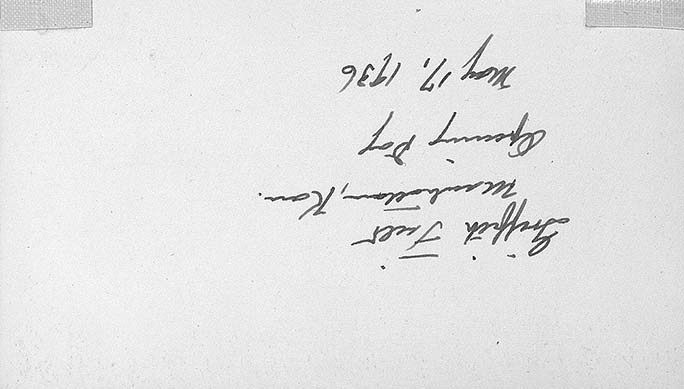 Griffith Field
Manhattan, Kan.
Opening Day
May 17, 1936